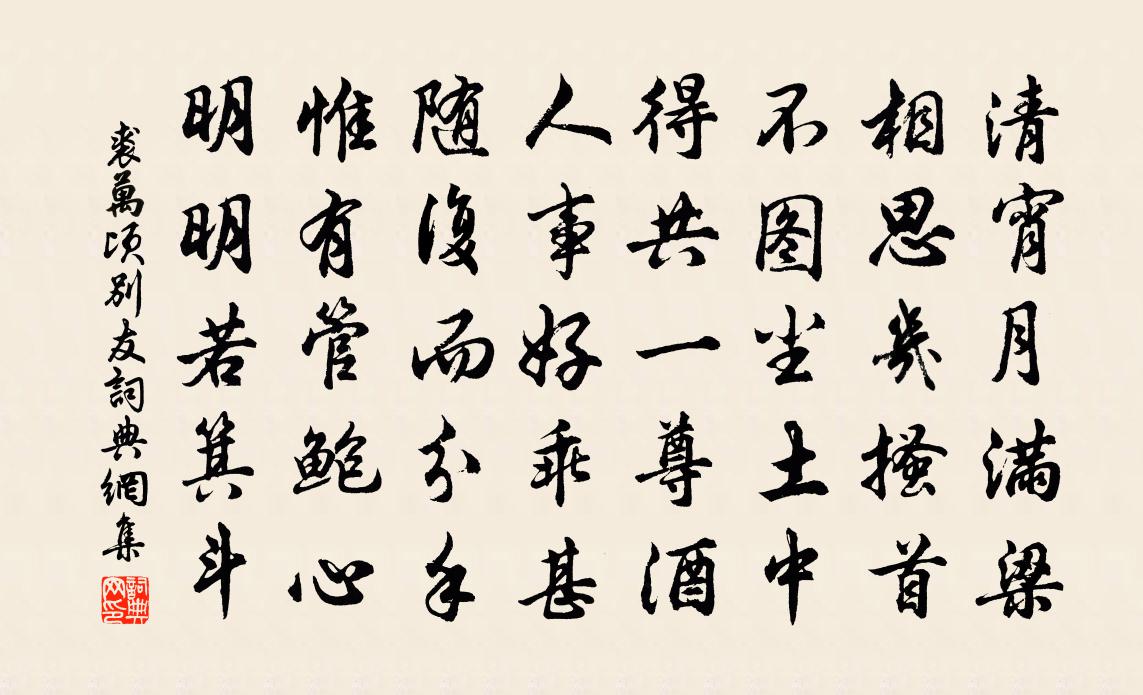 清宵月满梁
相思幾搔首
不图尘土中
得共一尊酒
人事好乖甚
随復而分手
惟有管鲍心
明明若箕斗
裘萬顷别友詞典網集
詞典网印